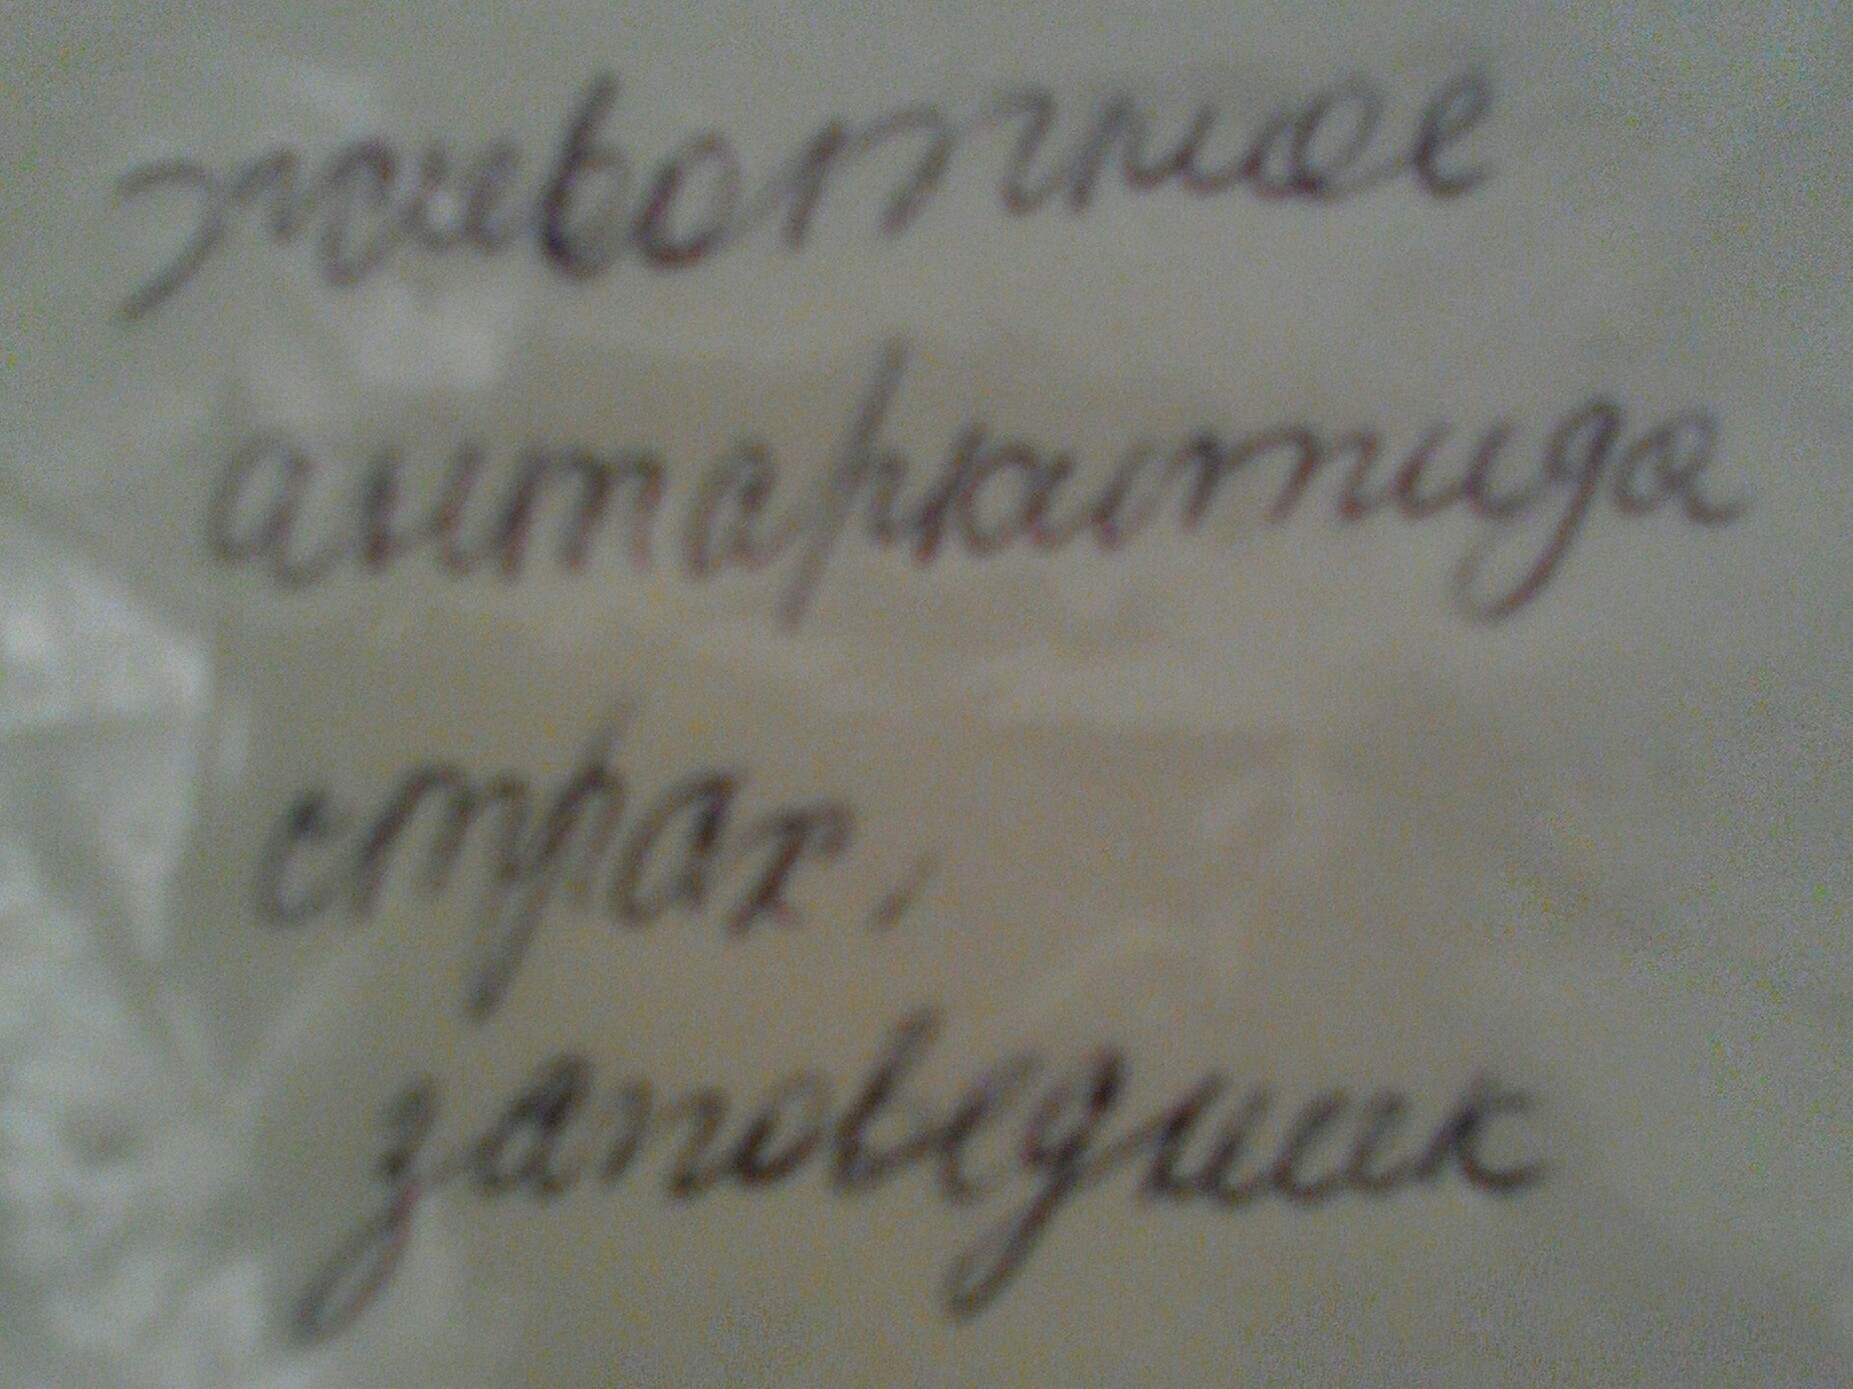 животное
антарктида
страх,
заповедник